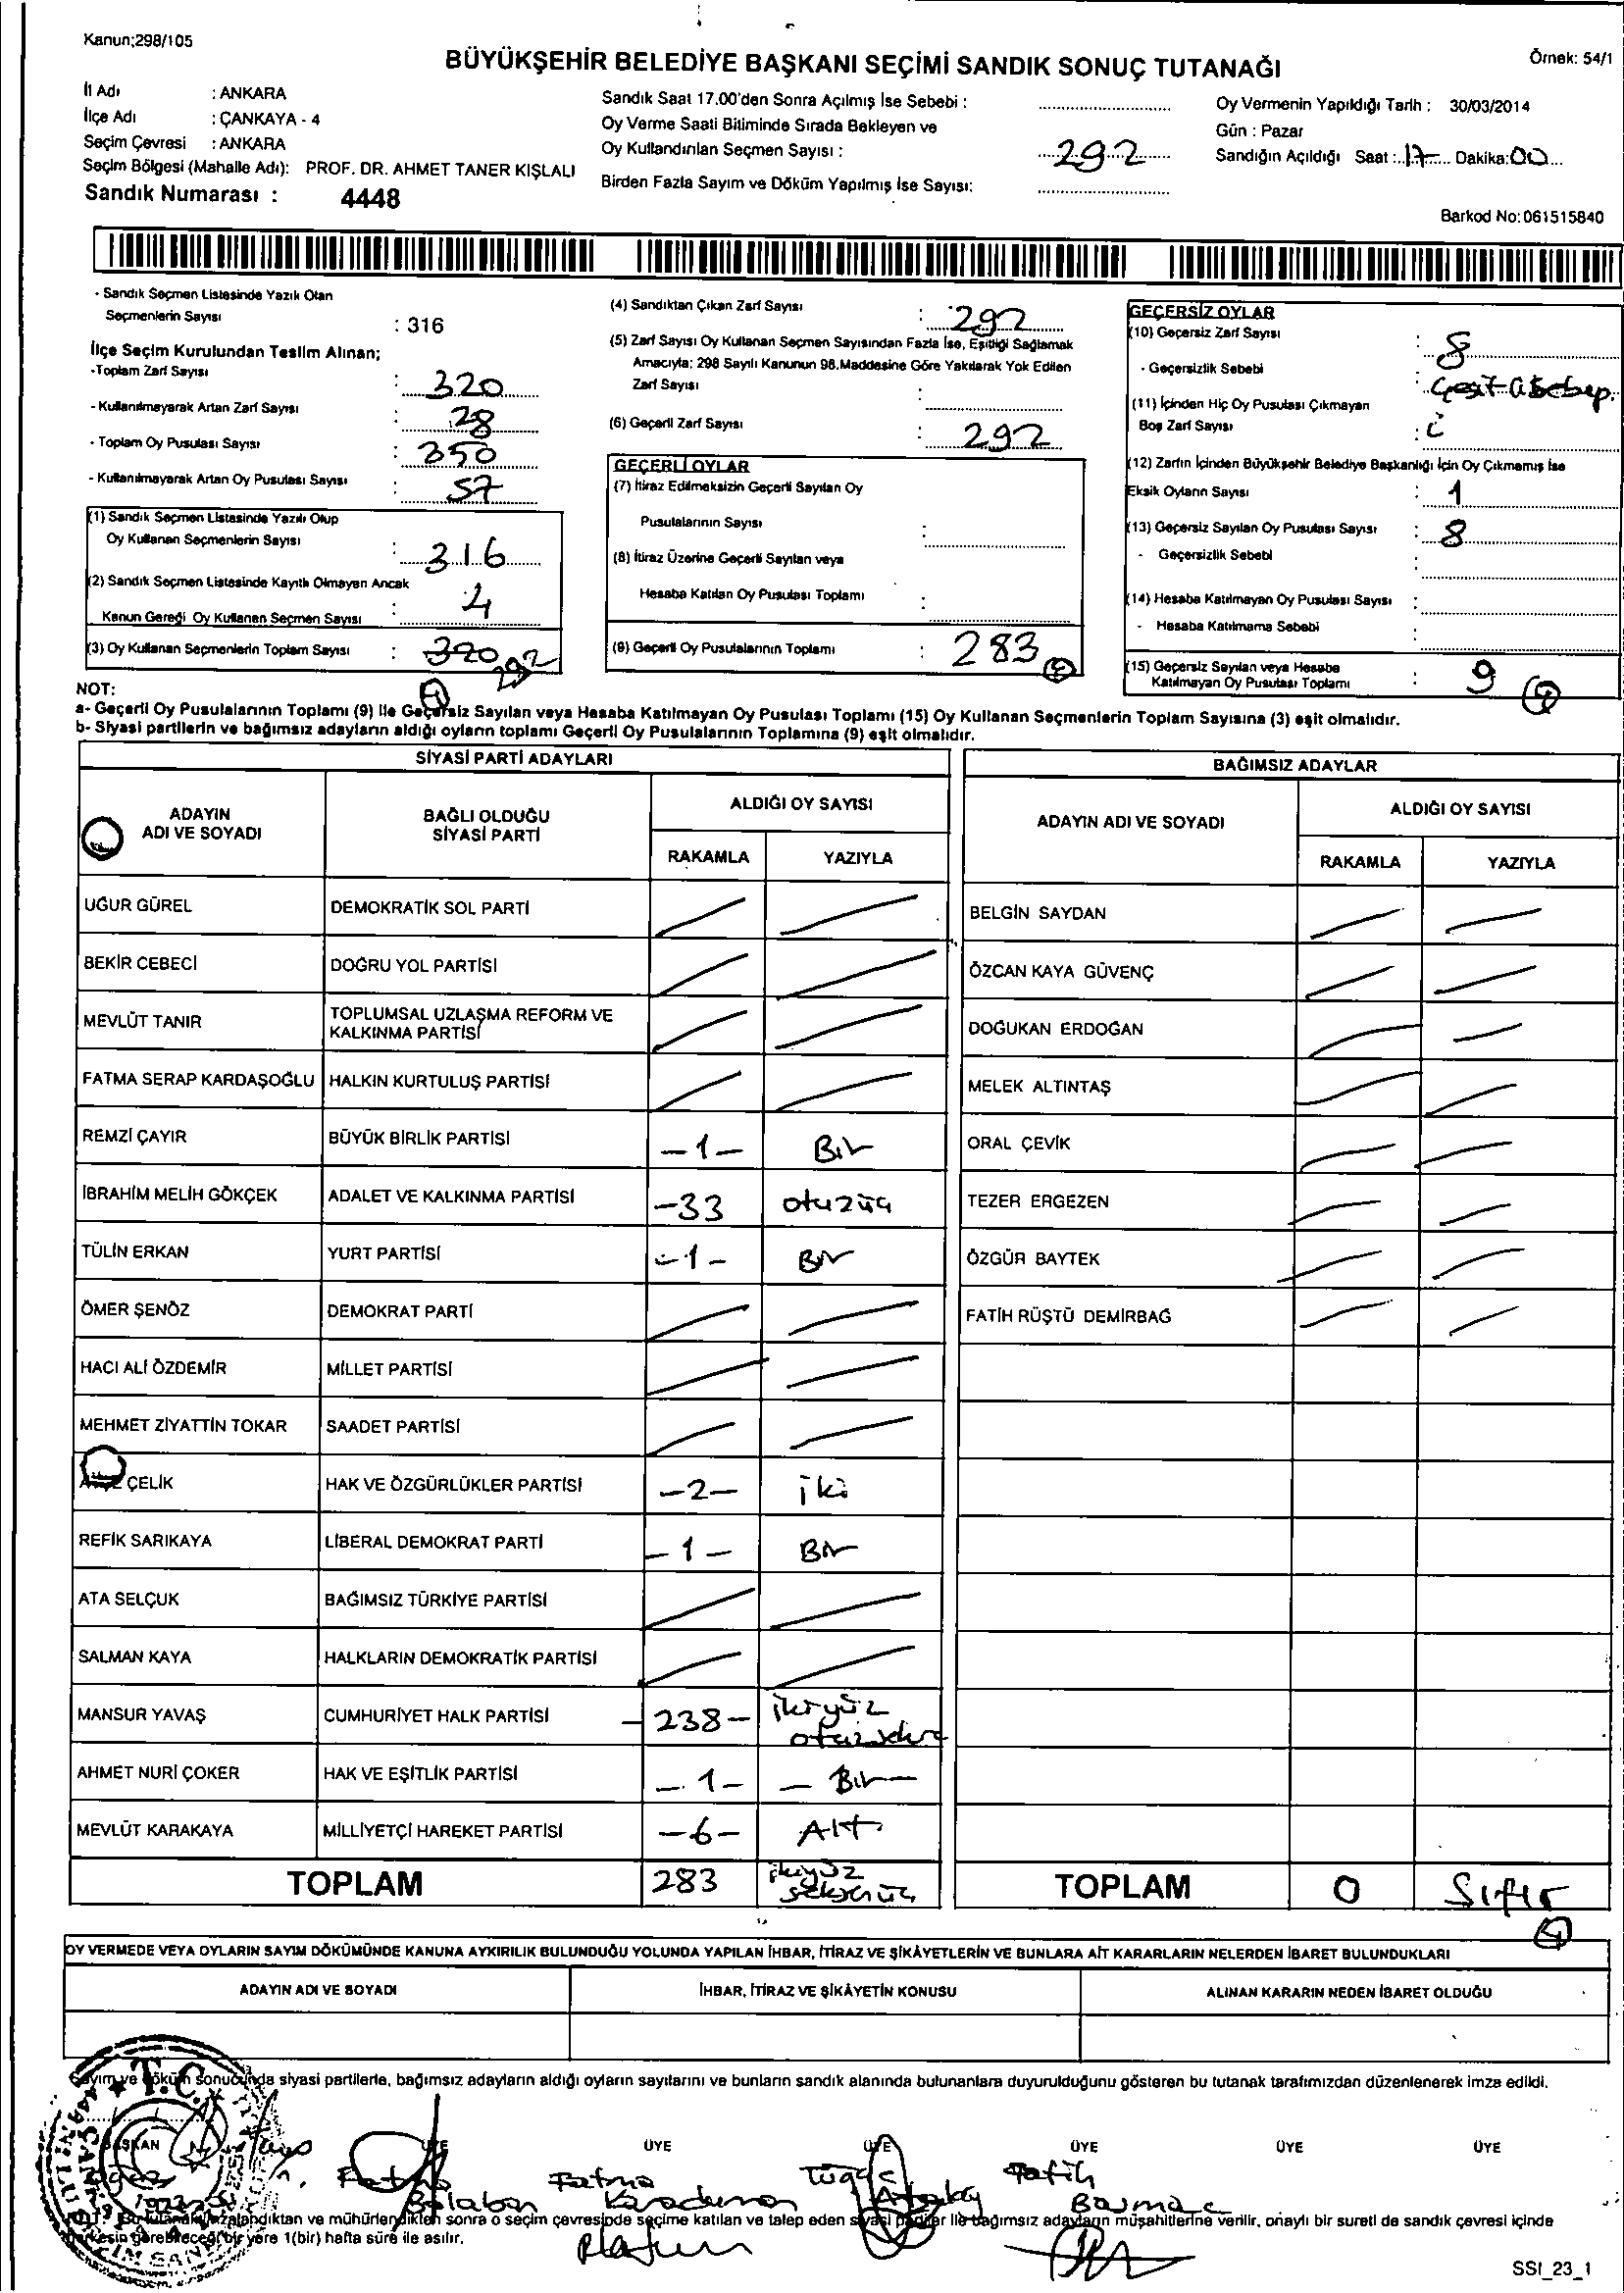 Kanun;298/105
BÜYÜKŞEHİR BELEDİYE BAŞKANI SEÇİMİ SANDIK SONUÇ TUTANAĞI
Örnek: 54/1
İl Adı : ANKARA
İlçe Adı : ÇANKAYA - 4
Seçim Çevresi : ANKARA
Seçim Bölgesi (Mahalle Adı): PROF. DR. AHMET TANER KIŞLALI
Sandık Numarası : 4448
Sandık Saat 17.00'den Sonra Açılmış İse Sebebi :
Oy Verme Saati Bitiminde Sırada Bekleyen ve
Oy Kullandırılan Seçmen Sayısı : 292
Birden Fazla Sayım ve Döküm Yapılmış İse Sayısı:
Oy Vermenin Yapıldığı Tarih : 30/03/2014
Gün : Pazar
Sandığın Açıldığı Saat : 17 Dakika: 00
Barkod No: 061515840
- Sandık Seçmen Listesinde Yazılı Olan
Seçmenlerin Sayısı : 316
İlçe Seçim Kurulundan Teslim Alınan;
-Toplam Zarf Sayısı : 320
- Kullanılmayarak Artan Zarf Sayısı : 28
- Toplam Oy Pusulası Sayısı : 350
- Kullanılmayarak Artan Oy Pusulası Sayısı : 57
(1) Sandık Seçmen Listesinde Yazılı Olup
Oy Kullanan Seçmenlerin Sayısı : 316
(2) Sandık Seçmen Listesinde Kayıtlı Olmayan Ancak
Kanun Gereği Oy Kullanan Seçmen Sayısı : 4
(3) Oy Kullanan Seçmenlerin Toplam Sayısı : 320 292
(4) Sandıktan Çıkan Zarf Sayısı : 292
(5) Zarf Sayısı Oy Kullanan Seçmen Sayısından Fazla İse, Eşitliği Sağlamak
Amacıyla; 298 Sayılı Kanunun 98.Maddesine Göre Yakılarak Yok Edilen
Zarf Sayısı :
(6) Geçerli Zarf Sayısı : 292
GEÇERLİ OYLAR
(7) İtiraz Edilmeksizin Geçerli Sayılan Oy
Pusulalarının Sayısı :
(8) İtiraz Üzerine Geçerli Sayılan veya
Hesaba Katılan Oy Pusulası Toplamı :
(9) Geçerli Oy Pusulalarının Toplamı : 283
GEÇERSİZ OYLAR
(10) Geçersiz Zarf Sayısı : 8
- Geçersizlik Sebebi :
(11) İçinden Hiç Oy Pusulası Çıkmayan
Boş Zarf Sayısı :
(12) Zarfın İçinden Büyükşehir Belediye Başkanlığı İçin Oy Çıkmamış İse
Eksik Oyların Sayısı : 1
(13) Geçersiz Sayılan Oy Pusulası Sayısı : 8
- Geçersizlik Sebebi :
(14) Hesaba Katılmayan Oy Pusulası Sayısı :
- Hesaba Katılmama Sebebi :
(15) Geçersiz Sayılan veya Hesaba
Katılmayan Oy Pusulası Toplamı : 9
NOT:
a- Geçerli Oy Pusulalarının Toplamı (9) ile Geçersiz Sayılan veya Hesaba Katılmayan Oy Pusulası Toplamı (15) Oy Kullanan Seçmenlerin Toplam Sayısına (3) eşit olmalıdır.
b- Siyasi partilerin ve bağımsız adayların aldığı oyların toplamı Geçerli Oy Pusulalarının Toplamına (9) eşit olmalıdır.
SİYASİ PARTİ ADAYLARI
ADAYIN ADI VE SOYADI
BAĞLI OLDUĞU SİYASİ PARTİ
ALDIĞI OY SAYISI
RAKAMLA YAZIYLA
UĞUR GÜREL DEMOKRATİK SOL PARTİ
BEKİR CEBECİ DOĞRU YOL PARTİSİ
MEVLÜT TANIR TOPLUMSAL UZLAŞMA REFORM VE KALKINMA PARTİSİ
FATMA SERAP KARDAŞOĞLU HALKIN KURTULUŞ PARTİSİ
REMZİ ÇAYIR BÜYÜK BİRLİK PARTİSİ -1- Bir
İBRAHİM MELİH GÖKÇEK ADALET VE KALKINMA PARTİSİ -33 otuzüç
TÜLİN ERKAN YURT PARTİSİ -1- Bir
ÖMER ŞENÖZ DEMOKRAT PARTİ
HACI ALİ ÖZDEMİR MİLLET PARTİSİ
MEHMET ZİYATTİN TOKAR SAADET PARTİSİ
ÇELİK HAK VE ÖZGÜRLÜKLER PARTİSİ -2- iki
REFİK SARIKAYA LİBERAL DEMOKRAT PARTİ -1- Bir
ATA SELÇUK BAĞIMSIZ TÜRKİYE PARTİSİ
SALMAN KAYA HALKLARIN DEMOKRATİK PARTİSİ
MANSUR YAVAŞ CUMHURİYET HALK PARTİSİ -238- ikiyüz otuzsekiz
AHMET NURİ ÇOKER HAK VE EŞİTLİK PARTİSİ -1- - Bir -
MEVLÜT KARAKAYA MİLLİYETÇİ HAREKET PARTİSİ -6- Altı
TOPLAM 283 ikiyüz seksenüç
BAĞIMSIZ ADAYLAR
ADAYIN ADI VE SOYADI
ALDIĞI OY SAYISI
RAKAMLA YAZIYLA
BELGİN SAYDAN
ÖZCAN KAYA GÜVENÇ
DOĞUKAN ERDOĞAN
MELEK ALTINTAŞ
ORAL ÇEVİK
TEZER ERGEZEN
ÖZGÜR BAYTEK
FATİH RÜŞTÜ DEMİRBAĞ
TOPLAM 0 Sıfır
OY VERMEDE VEYA OYLARIN SAYIM DÖKÜMÜNDE KANUNA AYKIRILIK BULUNDUĞU YOLUNDA YAPILAN İHBAR, İTİRAZ VE ŞİKÂYETLERİN VE BUNLARA AİT KARARLARIN NELERDEN İBARET BULUNDUKLARI
ADAYIN ADI VE SOYADI
İHBAR, İTİRAZ VE ŞİKÂYETİN KONUSU
ALINAN KARARIN NEDEN İBARET OLDUĞU
Sayım ve döküm sonucunda siyasi partilerle, bağımsız adayların aldığı oyların sayılarını ve bunların sandık alanında bulunanlara duyurulduğunu gösteren bu tutanak tarafımızdan düzenlenerek imza edildi.
T.C.
BAŞKAN ÜYE ÜYE ÜYE ÜYE ÜYE ÜYE
Fatma Balaban
Fatma Karaduman
Tuğçe
Fatih
imzalandıktan ve mühürlendikten sonra o seçim çevresinde seçime katılan ve talep eden siyasi partiler ile bağımsız adayların müşahitlerine verilir, onaylı bir sureti de sandık çevresi içinde
herkesin görebileceği bir yere 1(bir) hafta süre ile asılır.
SSI_23_1